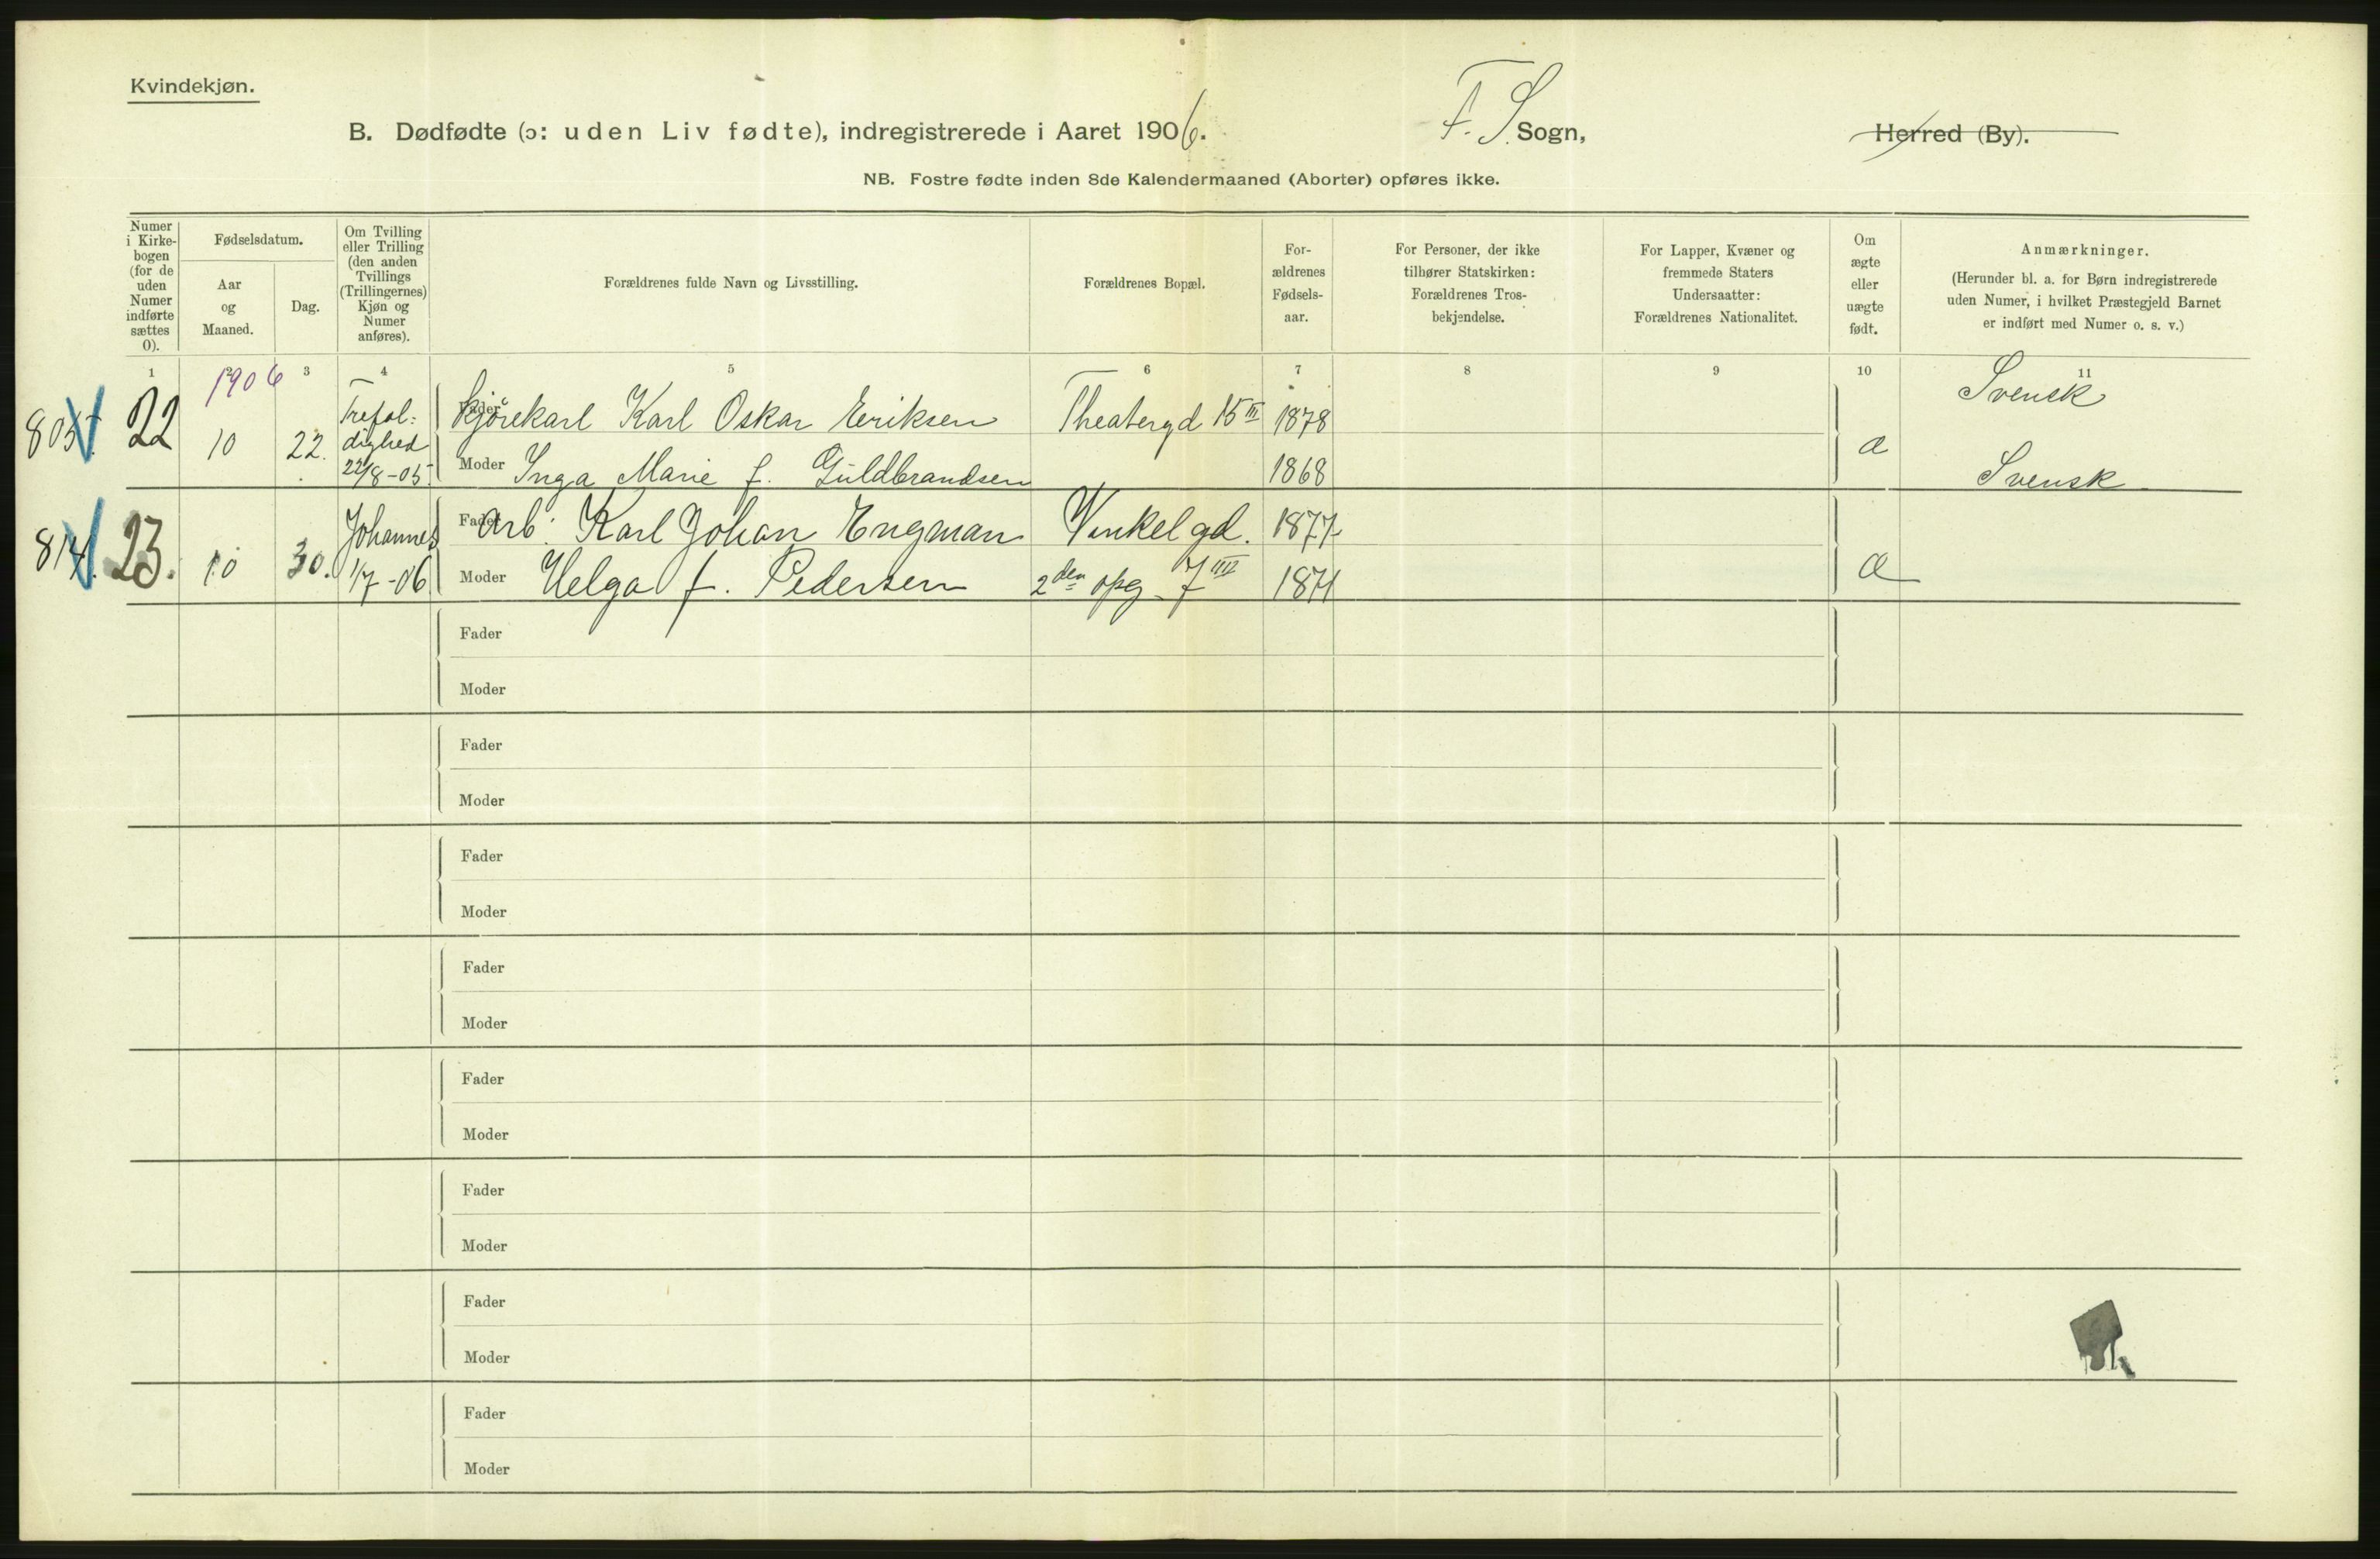 Kvindekjøn.
B. Dødfødte (ɔ: uden Liv fødte), indregistrerede i Aaret 1906.
F. S. Sogn,
Herred (By).
NB. Fostre fødte inden 8de Kalendermaaned (Aborter) opføres ikke.
Numer
i Kirke-
bogen
(for de
uden
Numer
indførte
sættes
0).
Fødselsdatum.
Aar
og
Maaned.
Dag.
Om Tvilling
eller Trilling
(den anden
Tvillings
(Trillingernes)
Kjøn og
Numer
anføres).
Forældrenes fulde Navn og Livsstilling.
Forældrenes Bopæl.
For-
ældrenes
Fødsels-
aar.
For Personer, der ikke
tilhører Statskirken:
Forældrenes Tros-
bekjendelse.
For Lapper, Kvæner og
fremmede Staters
Undersaatter:
Forældrenes Nationalitet.
Om
ægte
eller
uægte
født.
Anmærkninger.
(Herunder bl. a. for Børn indregistrerede
uden Numer, i hvilket Præstegjeld Barnet
er indført med Numer o. s. v.)
1 2 3 4 5 6 7 8 9 10 11
1906
805. 22 10 22. Trefol:
dighed
22/8-05
Fader Kjørekarl Karl Oskar Eeriksen Theatergd 15 III 1878 Svensk
Moder Inga Marie f. Guldbrandsen 1868 æ Svensk
814. 23. 10 30. Johannes
1/7-06
Fader Arb: Karl Johan Engman Vinkelgd. 1877
Moder Helga f. Pedersen 2den opg. 7 IIII 1871 æ
Fader
Moder
Fader
Moder
Fader
Moder
Fader
Moder
Fader
Moder
Fader
Moder
Fader
Moder
Fader
Moder